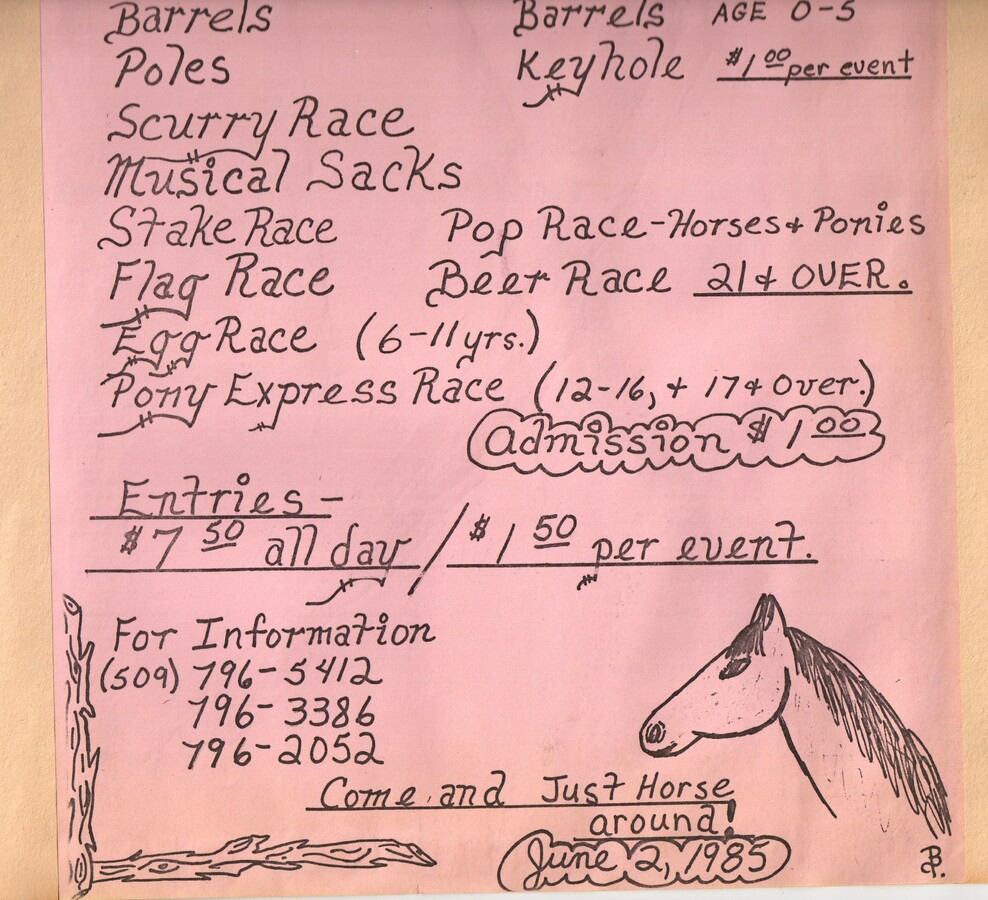 Barrels Barrels AGE 0-5
Poles Keyhole $1 00 per event
Scurry Race
Musical Sacks
Stake Race Pop Race-Horses & Ponies
Flag Race Beer Race 21 & OVER.
Egg Race (6-11 yrs.)
Pony Express Race (12-16, & 17 & Over.)
Admission $1 00
Entries -
$7 50 all day / $1 50 per event.
For Information
(509) 796-5412
796-3386
796-2052
Come and Just Horse
around!
June 2, 1985